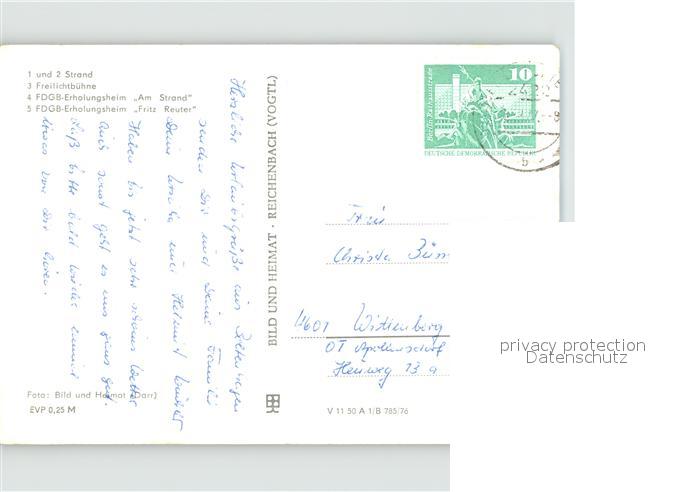 1 und 2 Strand
3 Freilichtbühne
4 FDGB-Erholungsheim „Am Strand"
5 FDGB-Erholungsheim „Fritz Reuter"
Herzliche Urlaubsgrüße aus
senden Dir und Deine Familie
Deine Ursula und Helmut
Haben bis jetzt sehr schönes Wetter
Auch sonst geht es uns ganz gut.
Laß bitte bald wieder einmal
etwas von Dir hören.
Foto: Bild und Heimat (Darr)
EVP 0,25 M
BILD UND HEIMAT · REICHENBACH (VOGTL)
V 11 50 A 1/B 785/76
10
Berlin, Rathausstraße
DEUTSCHE DEMOKRATISCHE REPUBLIK
Frau
Christa
4601 Wittenberg
OT Apollensdorf
Heuweg 13 a
privacy protection
Datenschutz